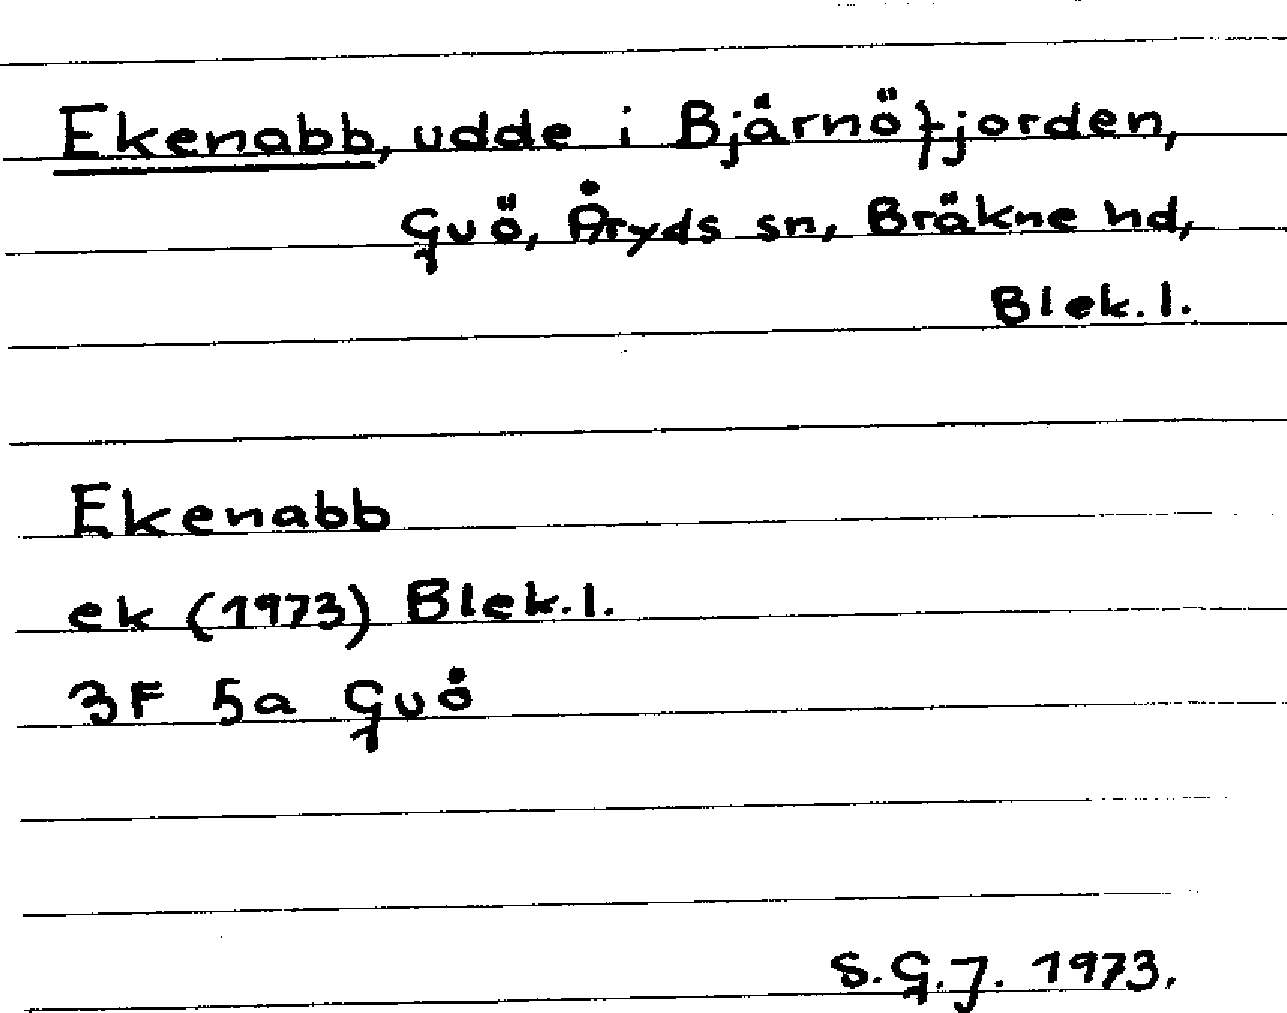 Ekenabb, udde i Bjärnöfjorden,
Guö, Åryds sn, Bräkne hd,
Blek. l.
Ekenabb
ek (1973) Blek. l.
3F 5a Guö
S.G.J. 1973.